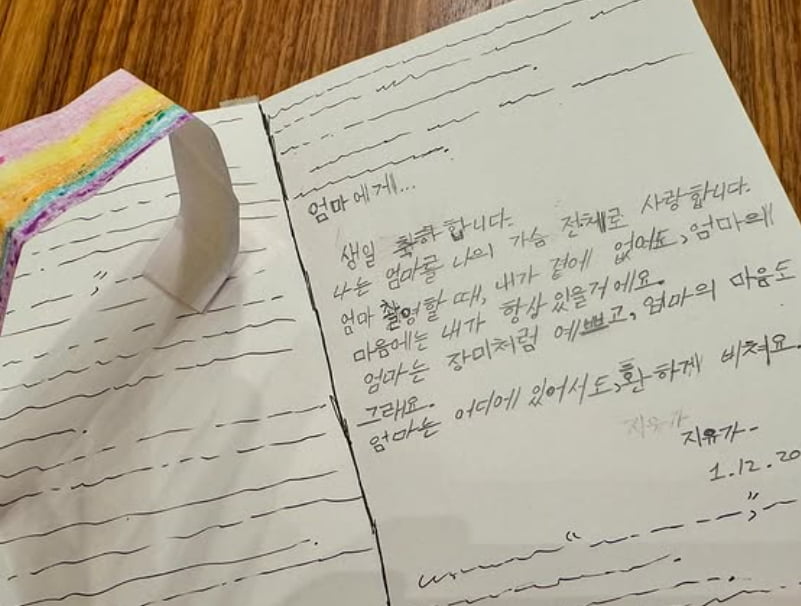 엄마에게...
생일 축하합니다.
나는 엄마를 나의 가슴 전체로 사랑합니다.
엄마 촬영할 때, 내가 곁에 없어도, 엄마의
마음에는 내가 항상 있을거에요.
엄마는 장미처럼 예쁘고, 엄마의 마음도
그래요.
엄마는 어디에 있어서도, 환하게 비쳐요.
지유가
지유가-
1.12.20